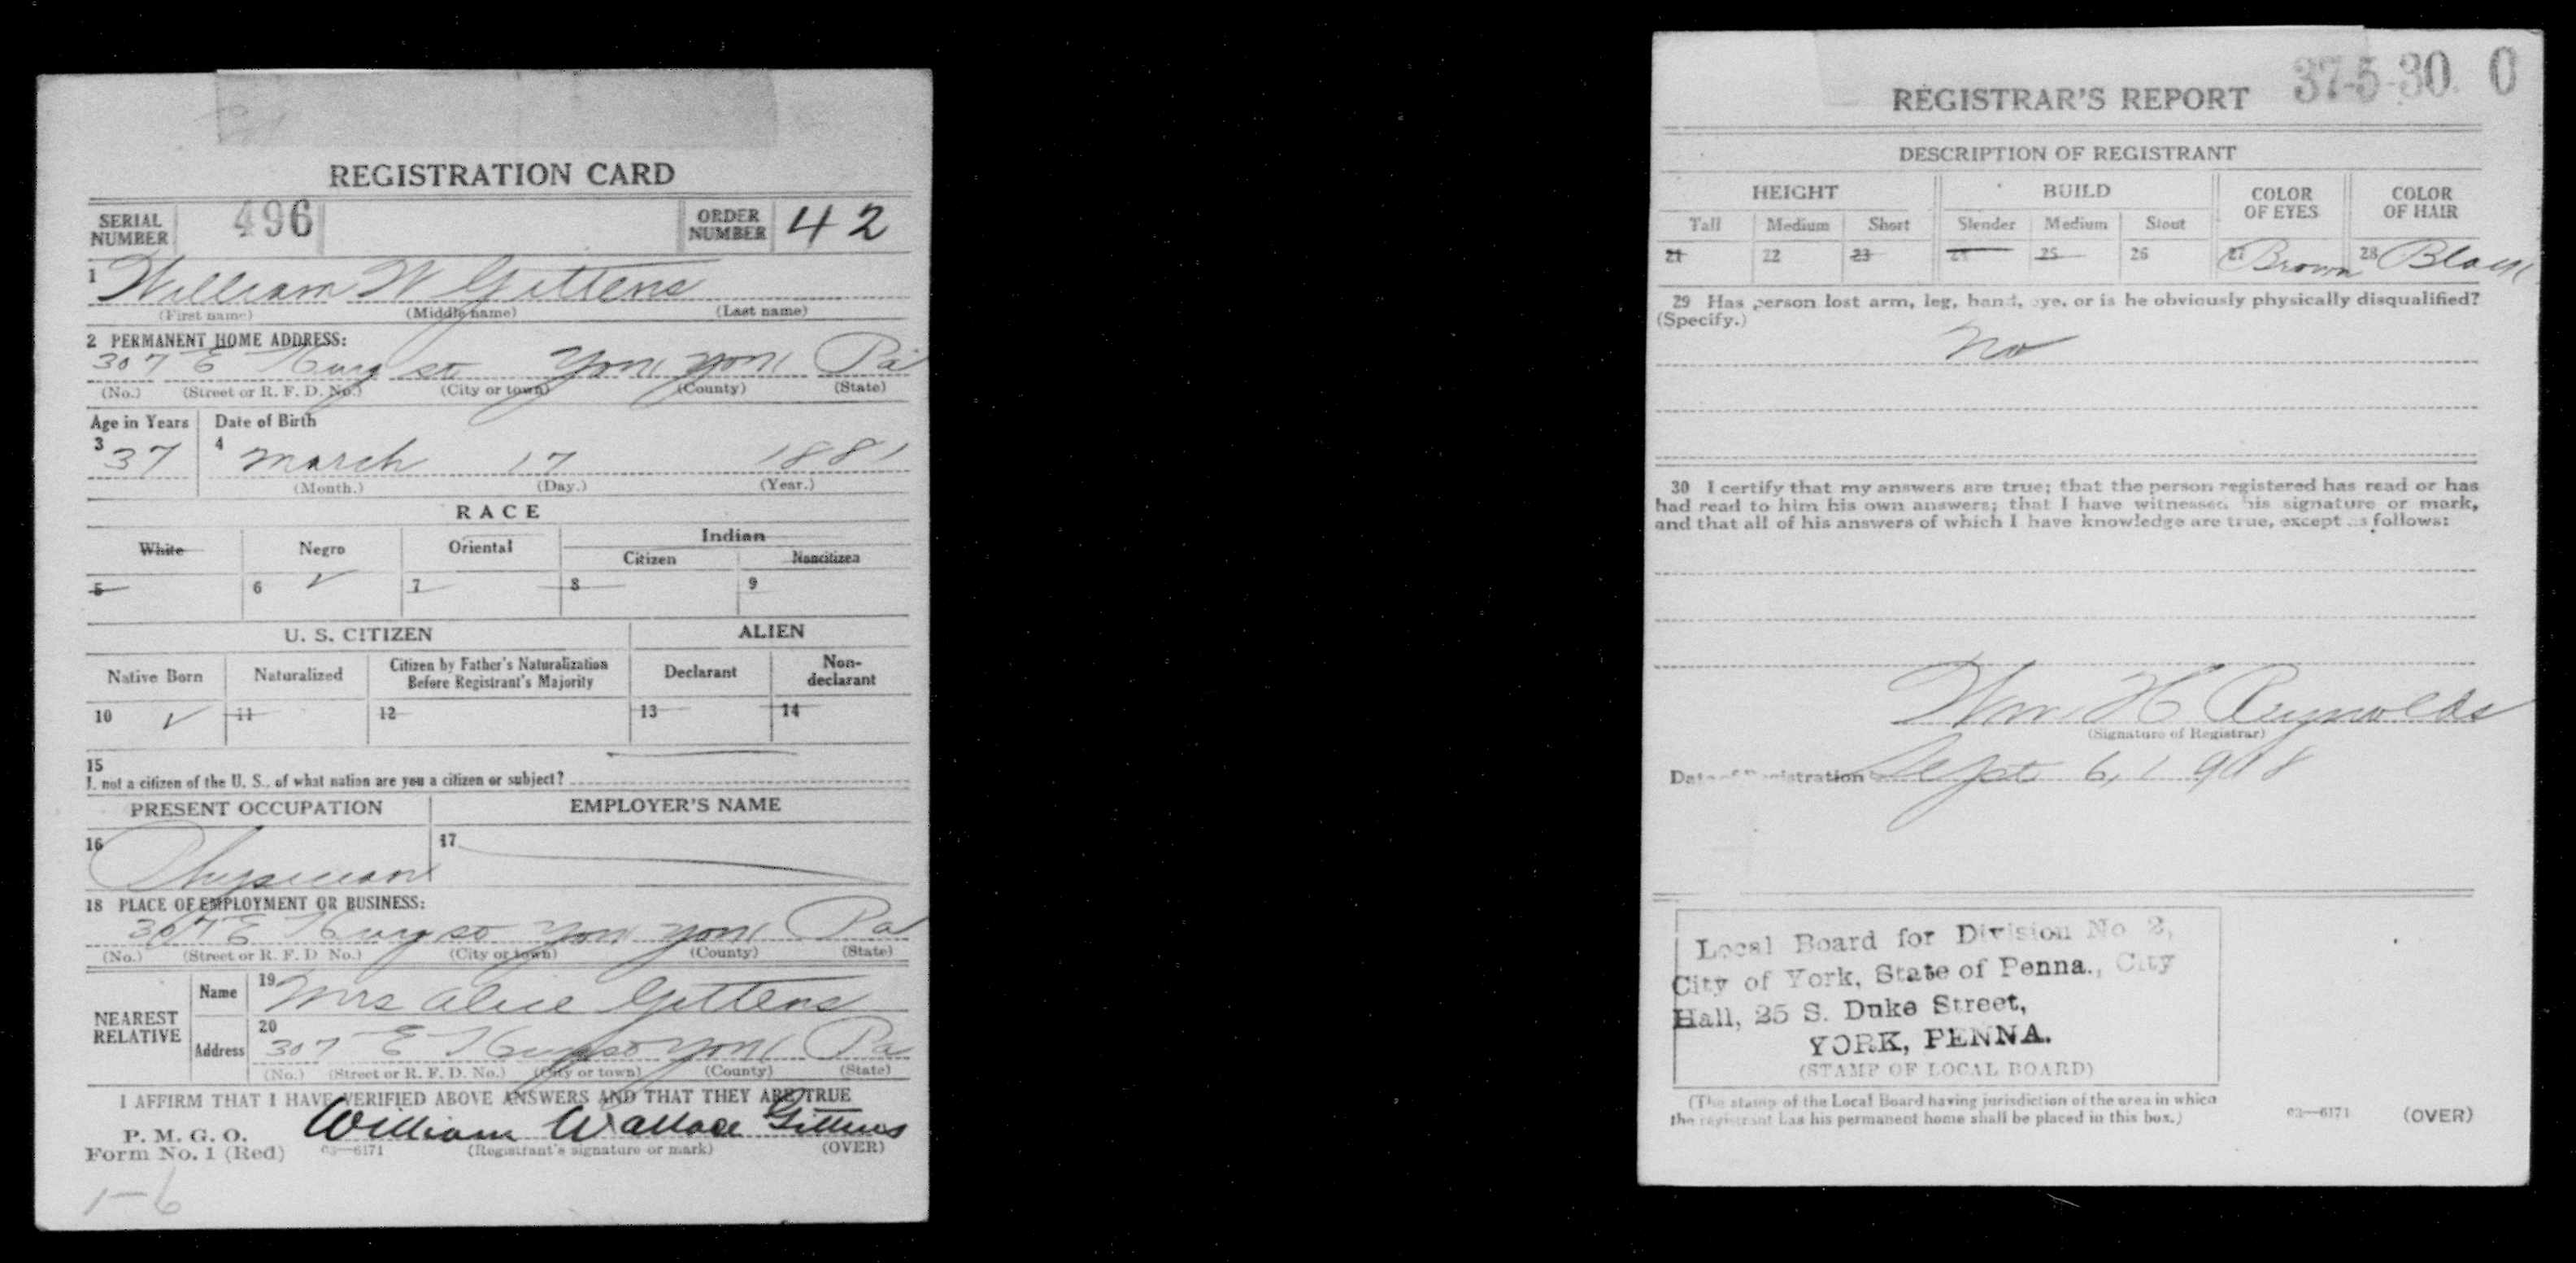 REGISTRATION CARD
SERIAL NUMBER 496 ORDER NUMBER 42
1 William W Gittens
(First name) (Middle name) (Last name)
2 PERMANENT HOME ADDRESS:
307 E King St York York Pa
(No.) (Street or R. F. D. No.) (City or town) (County) (State)
Age in Years Date of Birth
3 37 4 March 17 1881
(Month.) (Day.) (Year.)
RACE
White Negro Oriental Indian
Citizen Noncitizen
5 6 ✓ 7 8 9
U. S. CITIZEN ALIEN
Native Born Naturalized Citizen by Father's Naturalization Before Registrant's Majority Declarant Non-declarant
10 ✓ 11 12 13 14
15
If not a citizen of the U. S., of what nation are you a citizen or subject?
PRESENT OCCUPATION EMPLOYER'S NAME
16 Physician 17
18 PLACE OF EMPLOYMENT OR BUSINESS:
307 E King St York York Pa
(No.) (Street or R. F. D. No.) (City or town) (County) (State)
NEAREST RELATIVE
Name 19 Mrs Alice Gittens
Address 20 307 E King St York Pa
(No.) (Street or R. F. D. No.) (City or town) (County) (State)
I AFFIRM THAT I HAVE VERIFIED ABOVE ANSWERS AND THAT THEY ARE TRUE
P. M. G. O.
Form No. 1 (Red) 03—6171 William Wallace Gittens
(Registrant's signature or mark) (OVER)
1-6
37-5-30. 0
REGISTRAR'S REPORT
DESCRIPTION OF REGISTRANT
HEIGHT BUILD COLOR OF EYES COLOR OF HAIR
Tall Medium Short Slender Medium Stout
21 22 23 24 25 26 27 Brown 28 Black
29 Has person lost arm, leg, hand, eye, or is he obviously physically disqualified?
(Specify.)
No
30 I certify that my answers are true; that the person registered has read or has
had read to him his own answers; that I have witnessed his signature or mark,
and that all of his answers of which I have knowledge are true, except as follows:
Wm. H Reynolds
(Signature of Registrar)
Date of Registration Sept 6, 1918
Local Board for Division No 2,
City of York, State of Penna., City
Hall, 25 S. Duke Street,
YORK, PENNA.
(STAMP OF LOCAL BOARD)
(The stamp of the Local Board having jurisdiction of the area in which
the registrant has his permanent home shall be placed in this box.)
03—6171 (OVER)